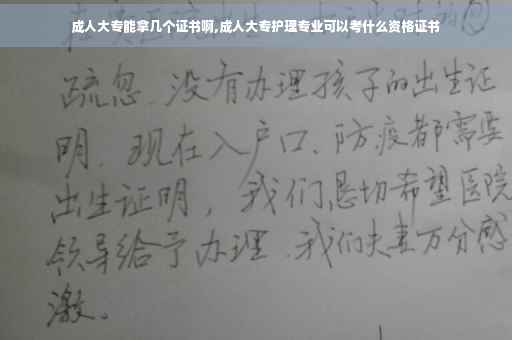 成人大专能拿几个证书啊,成人大专护理专业可以考什么资格证书
疏忽、没有办理孩子的出生证
明、现在入户口、防疫都需要
出生证明，我们恳切希望医院
领导给予办理、我们夫妻万分感
激。